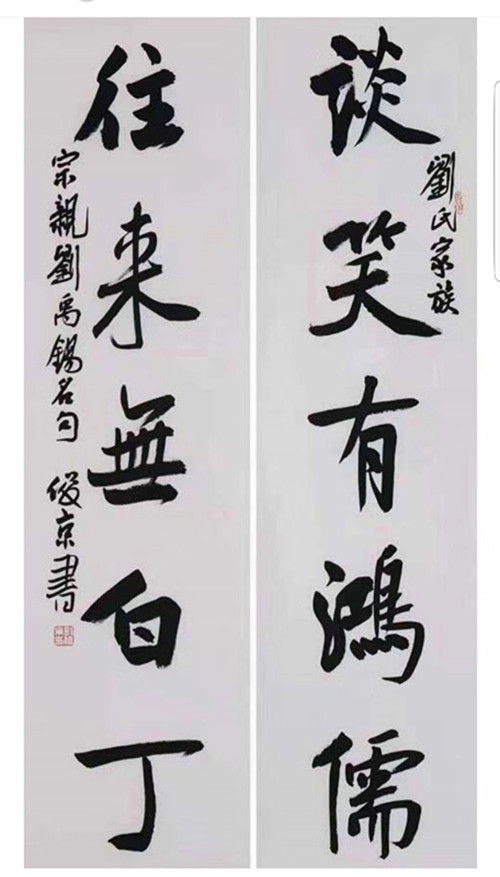 談笑有鴻儒
劉氏家族
往来無白丁
宗親劉禹錫名句 俊京書